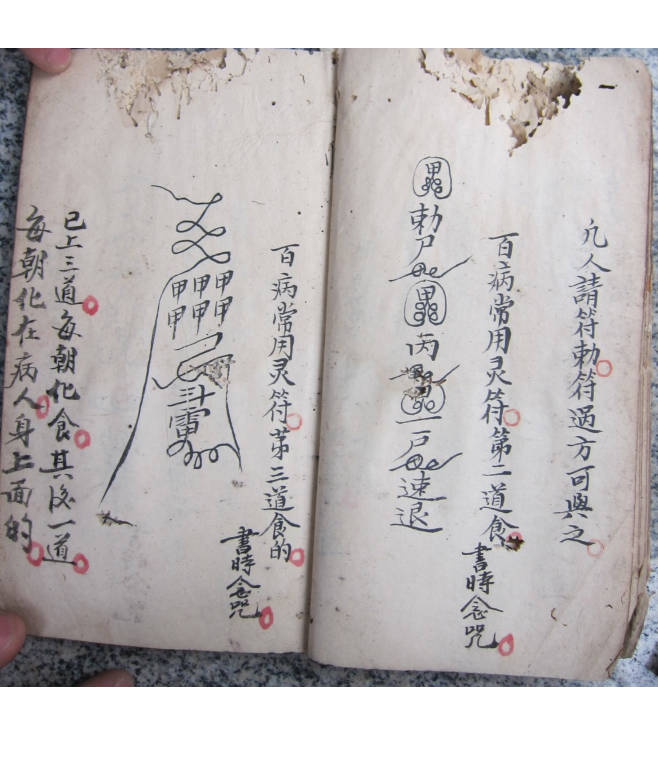 凡人請符勅符過方可與之
百病常用灵符第二道食
書時念咒
勅尸
丙
尸
速退
百病常用灵符苐三道食的
書時念咒
甲甲甲
甲甲甲
斗
雷
已上三道每朝化食其後一道
每朝化在病人身上面的